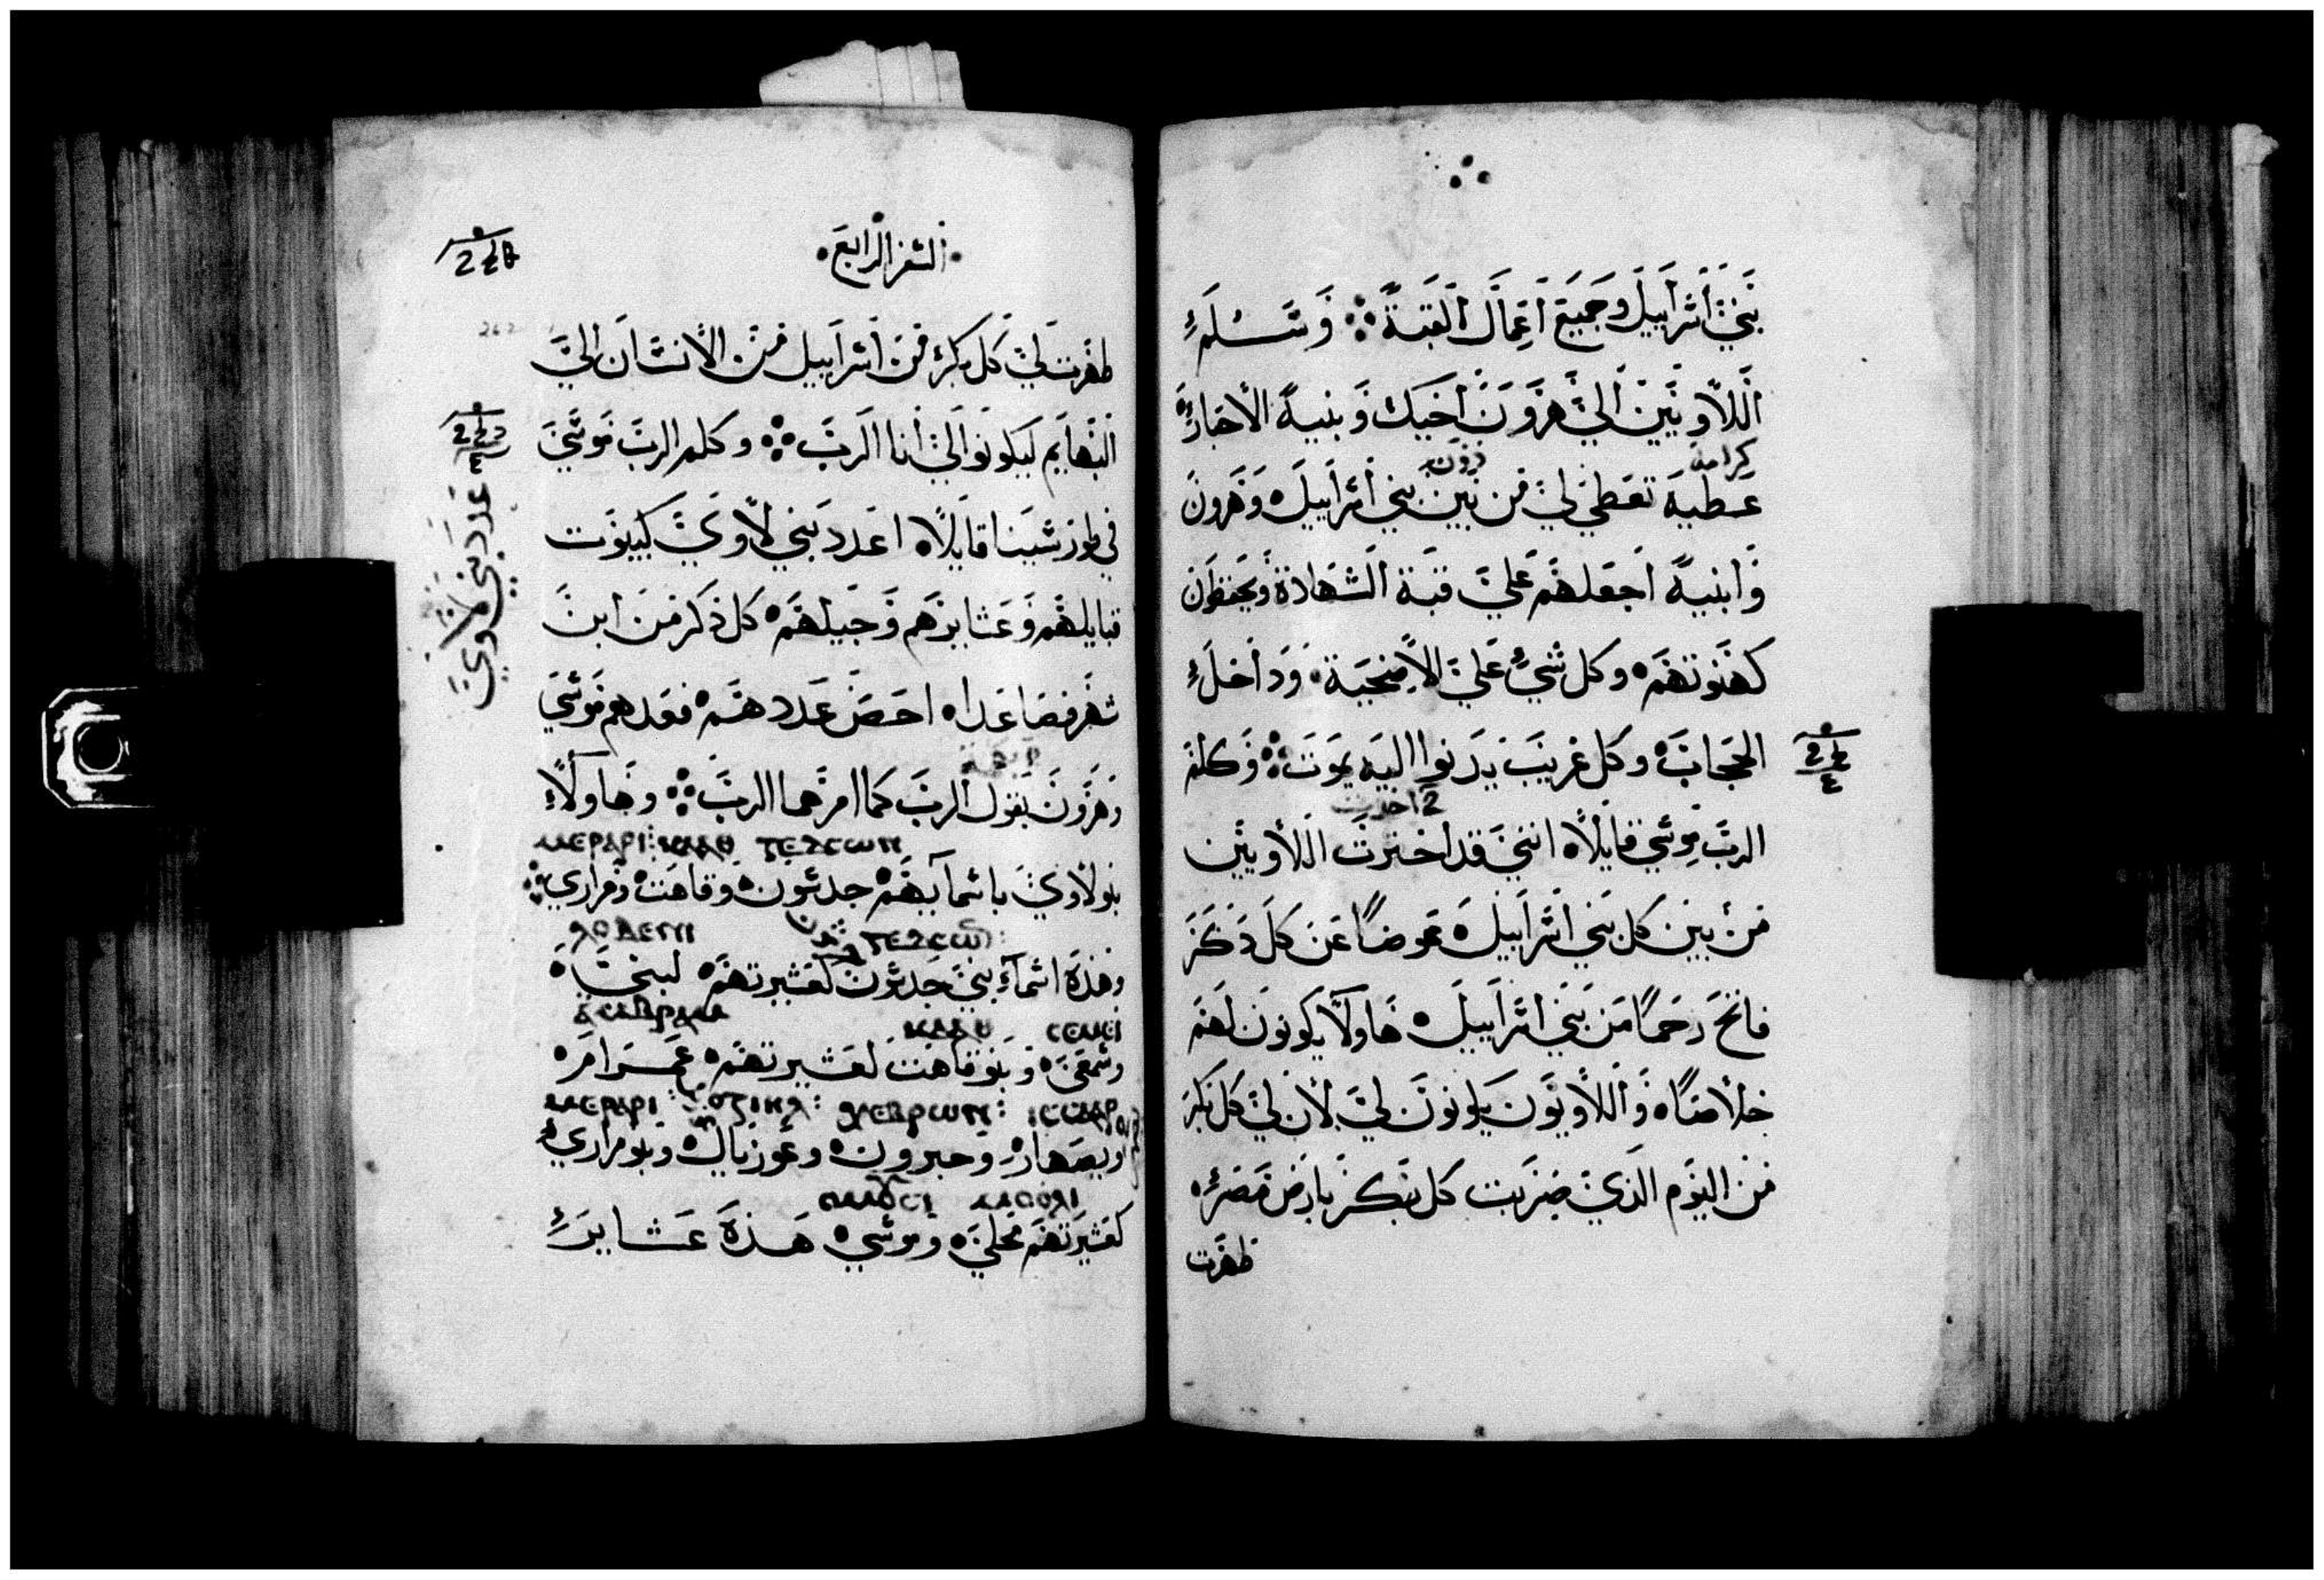 بني اسراييل وجميع اعمال القبة ؞ وتسلم
اللاويين الي هرون اخيك وبنيه الاحبار
كرامة دون
عطية تعطي لي من بين بني اسراييل وهرون
وابنيه اجعلهم علي قبة الشهادة ويحفظون
كهنوتهم وكل شي علي الامذبحية وداخل
الحجاب وكل غريب يدنوا اليه يموت ؞ وكلم
اخدت
الرب موسي قايلا انني قد اخترت اللاويين
من بين كل بني اسراييل عوضا عن كل ذكر
فاتح رحما من بني اسراييل هاولا يكونون لهم
خلاصا واللاويون يكونون لي لان لي كل بكر
من اليوم الذي ضربت كل بكر بارض مصر
طهرت
السفر الرابع
طهرت لي كل بكر من اسراييل من الانسان الي
البهايم ليكونوا لي انا الرب ؞ وكلم الرب موسي
في طور سينا قايلا اعدد بني لاوي كبيوت
عدد بني لاوي
قبايلهم وعشايرهم وجيلهم كل ذكر من ابن
شهر فصاعدا احص عددهم فعدهم موسي
وهرون بقول الرب كما امرهما الرب ؞ وهاولاء
ⲅⲉⲇⲥⲱⲛ ⲕⲁⲁⲑ ⲙⲉⲣⲁⲣⲓ
بنو لاوي باسمايهم جدسون وقاهت ومراري ؞
ⲅⲉⲇⲥⲱⲛ ⲗⲟⲃⲉⲛⲓ
وهذه اسماء بني جدسون كعشيرتهم لبني
ⲥⲉⲙⲉⲓ ⲕⲁⲁⲑ ⲁⲙⲃⲣⲁⲙ
وسمعي وبنو قاهت لعشيرتهم عمرام
ⲓⲥⲥⲁⲁⲣ ⲭⲉⲃⲣⲱⲛ ⲟⲍⲓⲏⲗ ⲙⲉⲣⲁⲣⲓ
ويصهار وحبرون وعوزيال وبنو مراري
ⲙⲟⲟⲗⲓ ⲟⲙⲟⲩⲥⲓ
كعشيرتهم محلي وموسي هذه عشاير